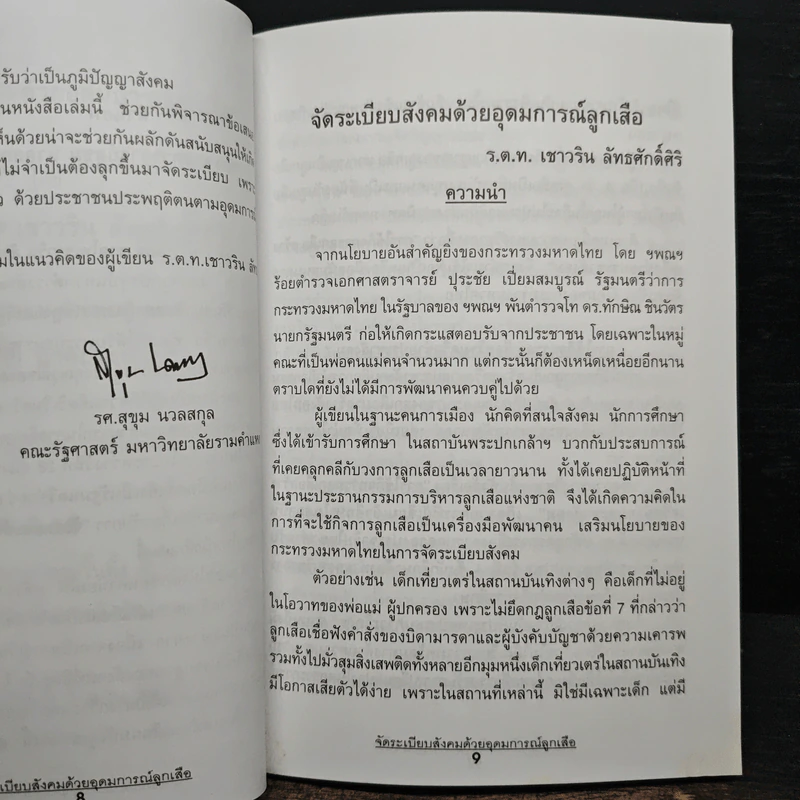 รับว่าเป็นภูมิปัญญาสังคม
นหนังสือเล่มนี้ ช่วยกันพิจารณาข้อเสนอ
ห็นด้วยน่าจะช่วยกันผลักดันสนับสนุนให้เกิ
ไม่จำเป็นต้องลุกขึ้นมาจัดระเบียบ เพรา
ว ด้วยประชาชนประพฤติตนตามอุดมการ
มในแนวคิดของผู้เขียน ร.ต.ท.เชาวริน ลัท
รศ.สุขุม นวลสกุล
คณะรัฐศาสตร์ มหาวิทยาลัยรามคำแห
เบียบสังคมด้วยอุดมการณ์ลูกเสือ
8
จัดระเบียบสังคมด้วยอุดมการณ์ลูกเสือ
ร.ต.ท. เชาวริน ลัทธศักดิ์ศิริ
ความนำ
จากนโยบายอันสำคัญยิ่งของกระทรวงมหาดไทย โดย ฯพณฯ
ร้อยตำรวจเอกศาสตราจารย์ ปุระชัย เปี่ยมสมบูรณ์ รัฐมนตรีว่าการ
กระทรวงมหาดไทย ในรัฐบาลของ ฯพณฯ พันตำรวจโท ดร.ทักษิณ ชินวัตร
นายกรัฐมนตรี ก่อให้เกิดกระแสตอบรับจากประชาชน โดยเฉพาะในหมู่
คณะที่เป็นพ่อคนแม่คนจำนวนมาก แต่กระนั้นก็ต้องเหน็ดเหนื่อยอีกนาน
ตราบใดที่ยังไม่ได้มีการพัฒนาคนควบคู่ไปด้วย
ผู้เขียนในฐานะคนการเมือง นักคิดที่สนใจสังคม นักการศึกษา
ซึ่งได้เข้ารับการศึกษา ในสถาบันพระปกเกล้าฯ บวกกับประสบการณ์
ที่เคยคลุกคลีกับวงการลูกเสือเป็นเวลายาวนาน ทั้งได้เคยปฏิบัติหน้าที่
ในฐานะประธานกรรมการบริหารลูกเสือแห่งชาติ จึงได้เกิดความคิดใน
การที่จะใช้กิจการลูกเสือเป็นเครื่องมือพัฒนาคน เสริมนโยบายของ
กระทรวงมหาดไทยในการจัดระเบียบสังคม
ตัวอย่างเช่น เด็กเที่ยวเตร่ในสถานบันเทิงต่างๆ คือเด็กที่ไม่อยู่
ในโอวาทของพ่อแม่ ผู้ปกครอง เพราะไม่ยึดกฎลูกเสือข้อที่ 7 ที่กล่าวว่า
ลูกเสือเชื่อฟังคำสั่งของบิดามารดาและผู้บังคับบัญชาด้วยความเคารพ
รวมทั้งไปมั่วสุมสิ่งเสพติดทั้งหลายอีกมุมหนึ่งเด็กเที่ยวเตร่ในสถานบันเทิง
มีโอกาสเสียตัวได้ง่าย เพราะในสถานที่เหล่านี้ มิใช่มีเฉพาะเด็ก แต่มี
จัดระเบียบสังคมด้วยอุดมการณ์ลูกเสือ
9